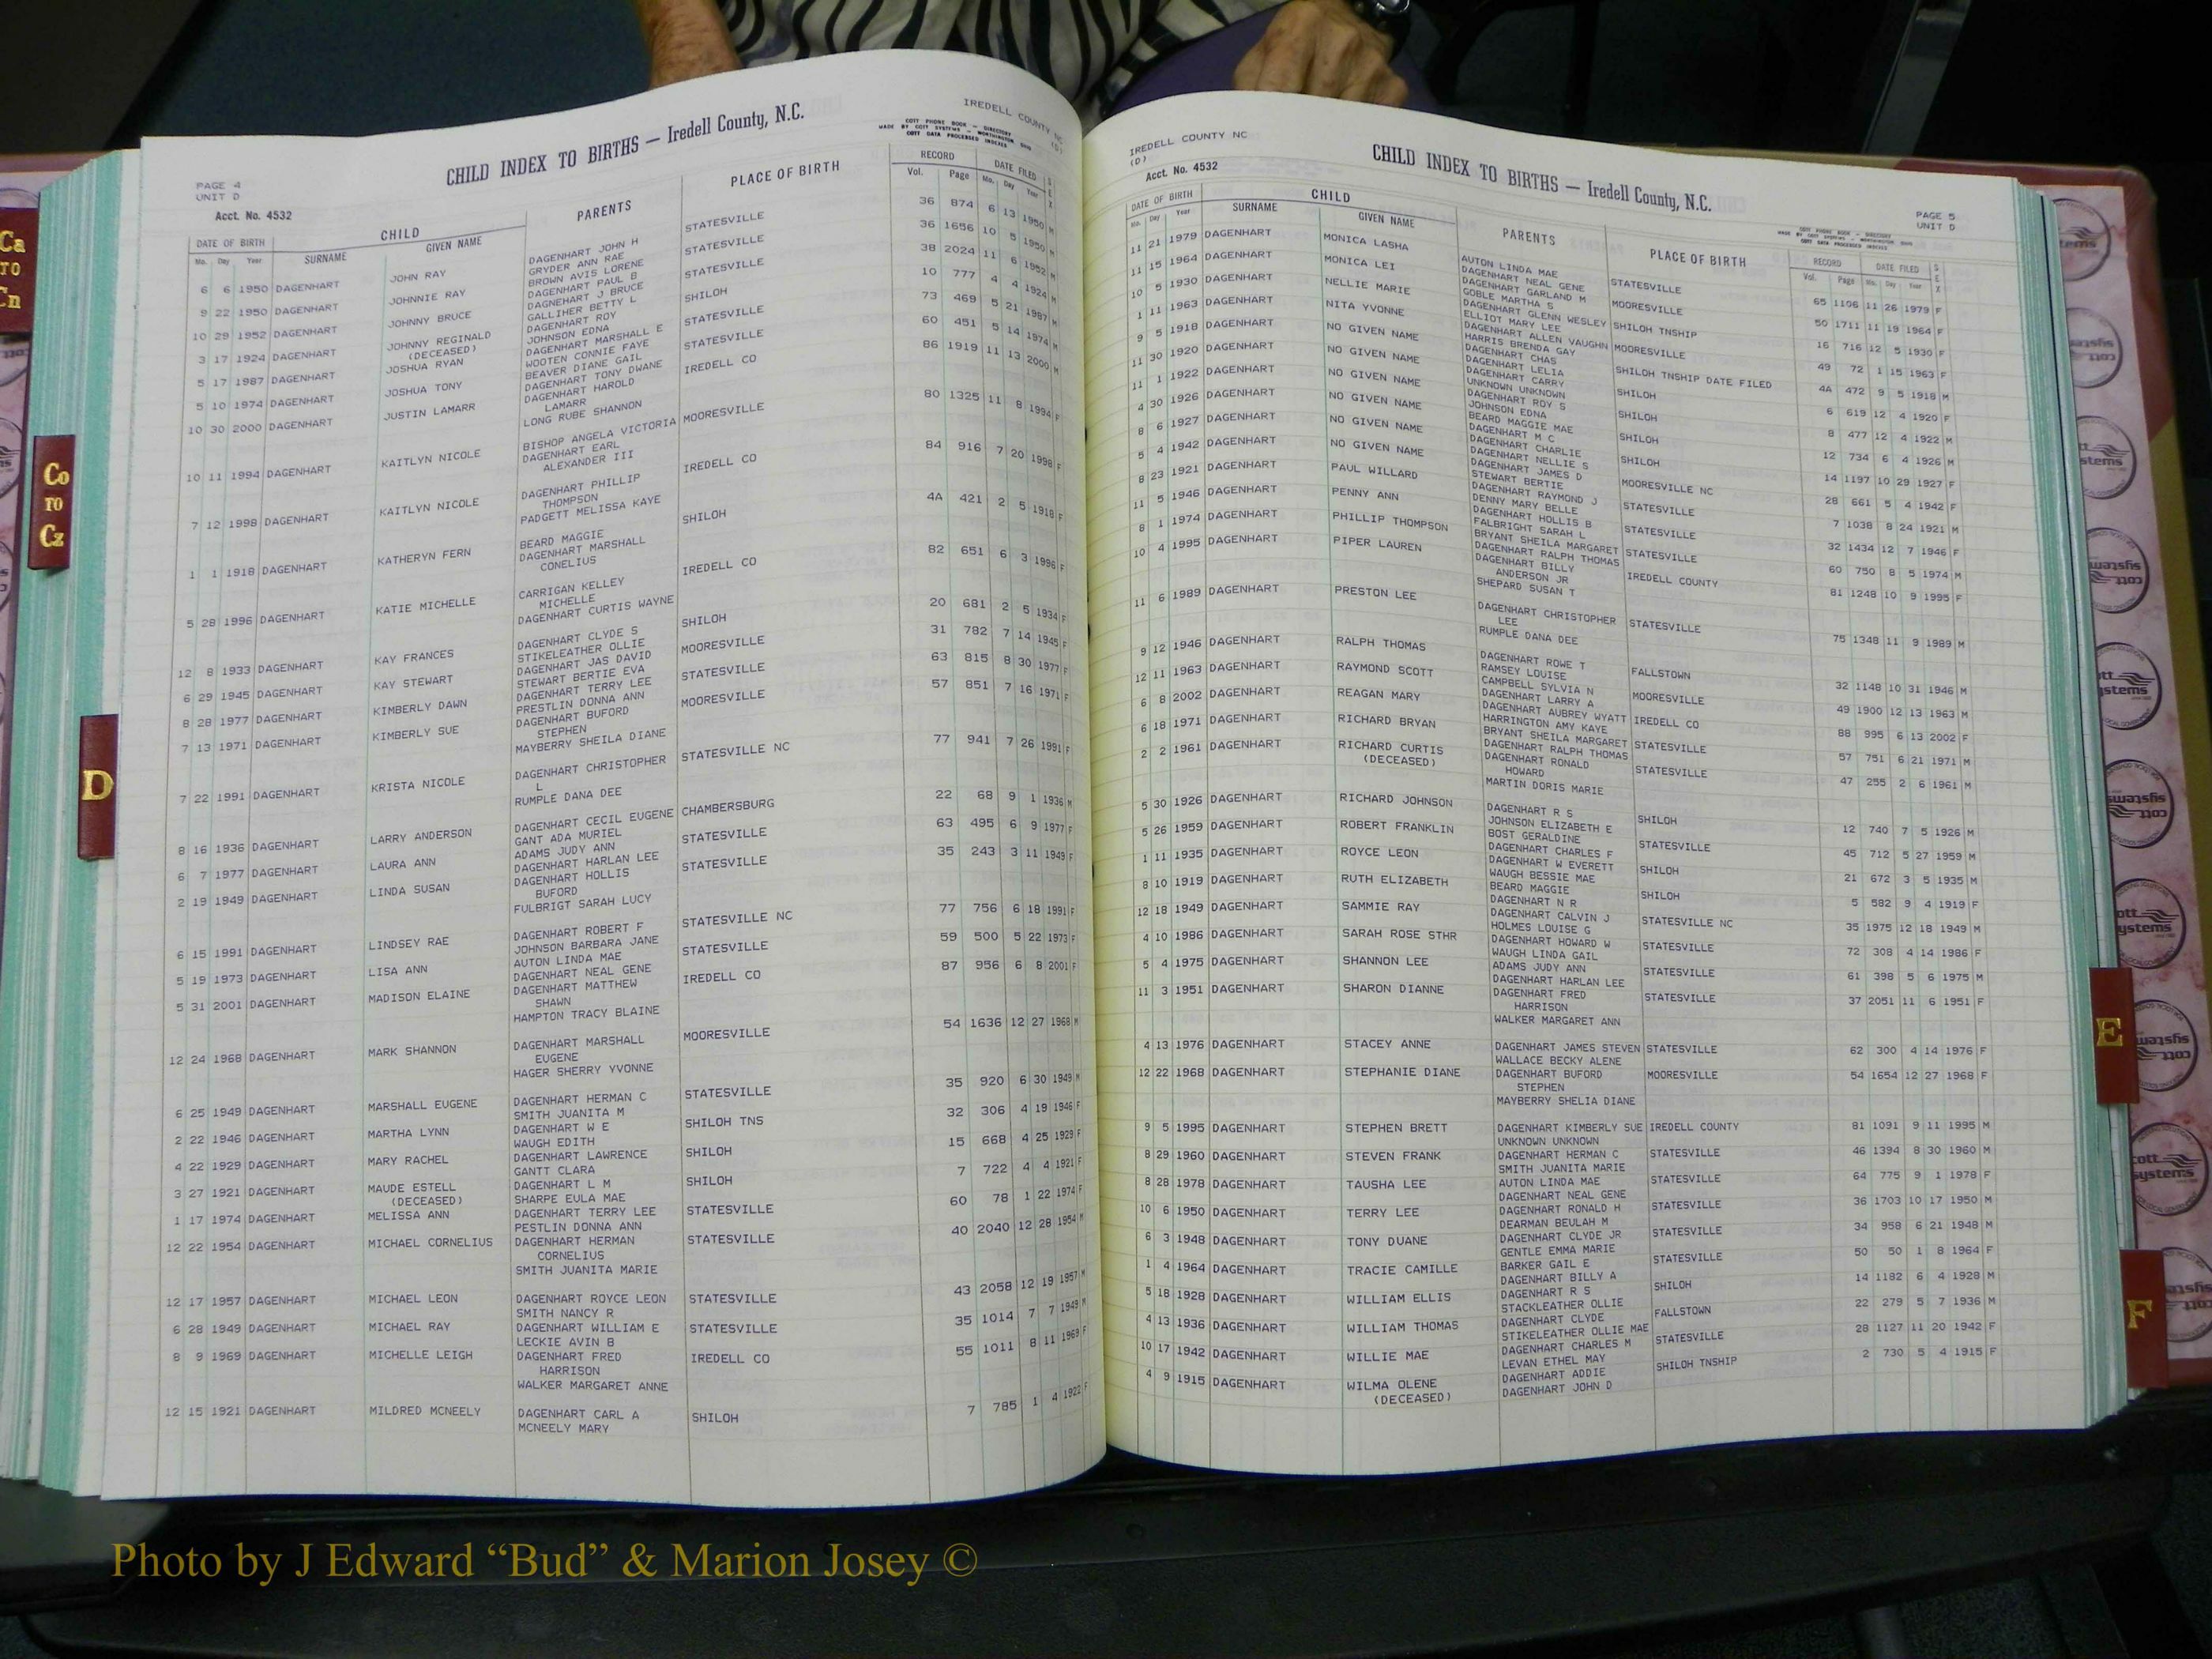 IREDELL COUNTY NC
(D)
CHILD INDEX TO BIRTHS — Iredell County, N.C.
COTT PHONE BOOK - DIRECTORY
MADE BY COTT SYSTEMS - WORTHINGTON OHIO
COTT DATA PROCESSED INDEXES
PAGE 4
UNIT D
Acct. No. 4532
DATE OF BIRTH CHILD PARENTS PLACE OF BIRTH RECORD DATE FILED SEX
Mo. Day Year SURNAME GIVEN NAME Vol. Page Mo. Day Year
6 6 1950 DAGENHART JOHN RAY DAGENHART JOHN H STATESVILLE 36 874 6 13 1950 M
GRYDER ANN RAE
9 22 1950 DAGENHART JOHNNIE RAY BROWN AVIS LORENE STATESVILLE 36 1656 10 5 1950 M
DAGENHART PAUL B
10 29 1952 DAGENHART JOHNNY BRUCE DAGNEHART J BRUCE STATESVILLE 38 2024 11 6 1952 M
GALLIHER BETTY L
3 17 1924 DAGENHART JOHNNY REGINALD DAGENHART ROY SHILOH 10 777 4 4 1924 M
(DECEASED) JOHNSON EDNA
5 17 1987 DAGENHART JOSHUA RYAN DAGENHART MARSHALL E STATESVILLE 73 469 5 21 1987 M
WOOTEN CONNIE FAYE
5 10 1974 DAGENHART JOSHUA TONY BEAVER DIANE GAIL STATESVILLE 60 451 5 14 1974 M
DAGENHART TONY DWANE
10 30 2000 DAGENHART JUSTIN LAMARR DAGENHART HAROLD IREDELL CO 86 1919 11 13 2000 M
LAMARR
LONG RUBE SHANNON
10 11 1994 DAGENHART KAITLYN NICOLE BISHOP ANGELA VICTORIA MOORESVILLE 80 1325 11 8 1994 F
DAGENHART EARL
ALEXANDER III
7 12 1998 DAGENHART KAITLYN NICOLE DAGENHART PHILLIP IREDELL CO 84 916 7 20 1998 F
THOMPSON
PADGETT MELISSA KAYE
1 1 1918 DAGENHART KATHERYN FERN BEARD MAGGIE SHILOH 4A 421 2 5 1918 F
DAGENHART MARSHALL
CONELIUS
5 28 1996 DAGENHART KATIE MICHELLE CARRIGAN KELLEY IREDELL CO 82 651 6 3 1996 F
MICHELLE
DAGENHART CURTIS WAYNE
12 8 1933 DAGENHART KAY FRANCES DAGENHART CLYDE S SHILOH 20 681 2 5 1934 F
STIKELEATHER OLLIE
6 29 1945 DAGENHART KAY STEWART DAGENHART JAS DAVID MOORESVILLE 31 782 7 14 1945 F
STEWART BERTIE EVA
8 28 1977 DAGENHART KIMBERLY DAWN DAGENHART TERRY LEE STATESVILLE 63 815 8 30 1977 F
PRESTLIN DONNA ANN
7 13 1971 DAGENHART KIMBERLY SUE DAGENHART BUFORD MOORESVILLE 57 851 7 16 1971 F
STEPHEN
MAYBERRY SHEILA DIANE
7 22 1991 DAGENHART KRISTA NICOLE DAGENHART CHRISTOPHER STATESVILLE NC 77 941 7 26 1991 F
L
RUMPLE DANA DEE
8 16 1936 DAGENHART LARRY ANDERSON DAGENHART CECIL EUGENE CHAMBERSBURG 22 68 9 1 1936 M
GANT ADA MURIEL
6 7 1977 DAGENHART LAURA ANN ADAMS JUDY ANN STATESVILLE 63 495 6 9 1977 F
DAGENHART HARLAN LEE
2 19 1949 DAGENHART LINDA SUSAN DAGENHART HOLLIS STATESVILLE 35 243 3 11 1949 F
BUFORD
FULBRIGT SARAH LUCY
6 15 1991 DAGENHART LINDSEY RAE DAGENHART ROBERT F STATESVILLE NC 77 756 6 18 1991 F
JOHNSON BARBARA JANE
5 19 1973 DAGENHART LISA ANN AUTON LINDA MAE STATESVILLE 59 500 5 22 1973 F
DAGENHART NEAL GENE
5 31 2001 DAGENHART MADISON ELAINE DAGENHART MATTHEW IREDELL CO 87 956 6 8 2001 F
SHAWN
HAMPTON TRACY BLAINE
12 24 1968 DAGENHART MARK SHANNON DAGENHART MARSHALL MOORESVILLE 54 1636 12 27 1968 M
EUGENE
HAGER SHERRY YVONNE
6 25 1949 DAGENHART MARSHALL EUGENE DAGENHART HERMAN C STATESVILLE 35 920 6 30 1949 M
SMITH JUANITA M
2 22 1946 DAGENHART MARTHA LYNN DAGENHART W E SHILOH TNS 32 306 4 19 1946 F
WAUGH EDITH
4 22 1929 DAGENHART MARY RACHEL DAGENHART LAWRENCE SHILOH 15 668 4 25 1929 F
GANTT CLARA
3 27 1921 DAGENHART MAUDE ESTELL DAGENHART L M SHILOH 7 722 4 4 1921 F
(DECEASED) SHARPE EULA MAE
1 17 1974 DAGENHART MELISSA ANN DAGENHART TERRY LEE STATESVILLE 60 78 1 22 1974 F
PESTLIN DONNA ANN
12 22 1954 DAGENHART MICHAEL CORNELIUS DAGENHART HERMAN STATESVILLE 40 2040 12 28 1954 M
CORNELIUS
SMITH JUANITA MARIE
12 17 1957 DAGENHART MICHAEL LEON DAGENHART ROYCE LEON STATESVILLE 43 2058 12 19 1957 M
SMITH NANCY R
6 28 1949 DAGENHART MICHAEL RAY DAGENHART WILLIAM E STATESVILLE 35 1014 7 7 1949 M
LECKIE AVIN B
8 9 1969 DAGENHART MICHELLE LEIGH DAGENHART FRED IREDELL CO 55 1011 8 11 1969 F
HARRISON
WALKER MARGARET ANNE
12 15 1921 DAGENHART MILDRED MCNEELY DAGENHART CARL A SHILOH 7 785 1 4 1922 F
MCNEELY MARY
IREDELL COUNTY NC
(D)
Acct. No. 4532
CHILD INDEX TO BIRTHS — Iredell County, N.C.
PAGE 5
UNIT D
DATE OF BIRTH CHILD PARENTS PLACE OF BIRTH RECORD DATE FILED SEX
Mo. Day Year SURNAME GIVEN NAME Vol. Page Mo. Day Year
11 21 1979 DAGENHART MONICA LASHA AUTON LINDA MAE STATESVILLE 65 1106 11 26 1979 F
DAGENHART NEAL GENE
11 15 1964 DAGENHART MONICA LEI DAGENHART GARLAND M MOORESVILLE 50 1711 11 19 1964 F
GOBLE MARTHA S
10 5 1930 DAGENHART NELLIE MARIE DAGENHART GLENN WESLEY SHILOH TNSHIP 16 716 12 5 1930 F
ELLIOT MARY LEE
1 11 1963 DAGENHART NITA YVONNE DAGENHART ALLEN VAUGHN MOORESVILLE 49 72 1 15 1963 F
HARRIS BRENDA GAY
9 5 1918 DAGENHART NO GIVEN NAME DAGENHART CHAS SHILOH TNSHIP DATE FILED 4A 472 9 5 1918 M
DAGENHART LELIA
11 30 1920 DAGENHART NO GIVEN NAME DAGENHART CARRY SHILOH 6 619 12 4 1920 F
UNKNOWN UNKNOWN
11 1 1922 DAGENHART NO GIVEN NAME DAGENHART ROY S SHILOH 8 477 12 4 1922 M
JOHNSON EDNA
4 30 1926 DAGENHART NO GIVEN NAME BEARD MAGGIE MAE SHILOH 12 734 6 4 1926 M
DAGENHART M C
8 6 1927 DAGENHART NO GIVEN NAME DAGENHART CHARLIE SHILOH 14 1197 10 29 1927 F
DAGENHART NELLIE S
5 4 1942 DAGENHART NO GIVEN NAME DAGENHART JAMES D MOORESVILLE NC 28 661 5 4 1942 F
STEWART BERTIE
8 23 1921 DAGENHART PAUL WILLARD DAGENHART RAYMOND J STATESVILLE 7 1038 8 24 1921 M
DENNY MARY BELLE
11 5 1946 DAGENHART PENNY ANN DAGENHART HOLLIS B STATESVILLE 32 1434 12 7 1946 F
FALBRIGHT SARAH L
8 1 1974 DAGENHART PHILLIP THOMPSON BRYANT SHEILA MARGARET STATESVILLE 60 750 8 5 1974 M
DAGENHART RALPH THOMAS
10 4 1995 DAGENHART PIPER LAUREN DAGENHART BILLY IREDELL COUNTY 81 1248 10 9 1995 F
ANDERSON JR
SHEPARD SUSAN T
11 6 1989 DAGENHART PRESTON LEE DAGENHART CHRISTOPHER STATESVILLE 75 1348 11 9 1989 M
LEE
RUMPLE DANA DEE
9 12 1946 DAGENHART RALPH THOMAS DAGENHART ROWE T FALLSTOWN 32 1148 10 31 1946 M
RAMSEY LOUISE
12 11 1963 DAGENHART RAYMOND SCOTT CAMPBELL SYLVIA N MOORESVILLE 49 1900 12 13 1963 M
DAGENHART LARRY A
6 8 2002 DAGENHART REAGAN MARY DAGENHART AUBREY WYATT IREDELL CO 88 995 6 13 2002 F
HARRINGTON AMY KAYE
6 18 1971 DAGENHART RICHARD BRYAN BRYANT SHEILA MARGARET STATESVILLE 57 751 6 21 1971 M
DAGENHART RALPH THOMAS
2 2 1961 DAGENHART RICHARD CURTIS DAGENHART RONALD STATESVILLE 47 255 2 6 1961 M
(DECEASED) HOWARD
MARTIN DORIS MARIE
5 30 1926 DAGENHART RICHARD JOHNSON DAGENHART R S SHILOH 12 740 7 5 1926 M
JOHNSON ELIZABETH E
5 26 1959 DAGENHART ROBERT FRANKLIN BOST GERALDINE STATESVILLE 45 712 5 27 1959 M
DAGENHART CHARLES F
1 11 1935 DAGENHART ROYCE LEON DAGENHART W EVERETT SHILOH 21 672 3 5 1935 M
WAUGH BESSIE MAE
8 10 1919 DAGENHART RUTH ELIZABETH BEARD MAGGIE SHILOH 5 582 9 4 1919 F
DAGENHART N R
12 18 1949 DAGENHART SAMMIE RAY DAGENHART CALVIN J STATESVILLE NC 35 1975 12 18 1949 M
HOLMES LOUISE G
4 10 1986 DAGENHART SARAH ROSE STHR DAGENHART HOWARD W STATESVILLE 72 308 4 14 1986 F
WAUGH LINDA GAIL
5 4 1975 DAGENHART SHANNON LEE ADAMS JUDY ANN STATESVILLE 61 398 5 6 1975 M
DAGENHART HARLAN LEE
11 3 1951 DAGENHART SHARON DIANNE DAGENHART FRED STATESVILLE 37 2051 11 6 1951 F
HARRISON
WALKER MARGARET ANN
4 13 1976 DAGENHART STACEY ANNE DAGENHART JAMES STEVEN STATESVILLE 62 300 4 14 1976 F
WALLACE BECKY ALENE
12 22 1968 DAGENHART STEPHANIE DIANE DAGENHART BUFORD MOORESVILLE 54 1654 12 27 1968 F
STEPHEN
MAYBERRY SHELIA DIANE
9 5 1995 DAGENHART STEPHEN BRETT DAGENHART KIMBERLY SUE IREDELL COUNTY 81 1091 9 11 1995 M
UNKNOWN UNKNOWN
8 29 1960 DAGENHART STEVEN FRANK DAGENHART HERMAN C STATESVILLE 46 1394 8 30 1960 M
SMITH JUANITA MARIE
8 28 1978 DAGENHART TAUSHA LEE AUTON LINDA MAE STATESVILLE 64 775 9 1 1978 F
DAGENHART NEAL GENE
10 6 1950 DAGENHART TERRY LEE DAGENHART RONALD H STATESVILLE 36 1703 10 17 1950 M
DEARMAN BEULAH M
6 3 1948 DAGENHART TONY DUANE DAGENHART CLYDE JR STATESVILLE 34 958 6 21 1948 M
GENTLE EMMA MARIE
1 4 1964 DAGENHART TRACIE CAMILLE BARKER GAIL E STATESVILLE 50 50 1 8 1964 F
DAGENHART BILLY A
5 18 1928 DAGENHART WILLIAM ELLIS DAGENHART R S SHILOH 14 1182 6 4 1928 M
STACKLEATHER OLLIE
4 13 1936 DAGENHART WILLIAM THOMAS DAGENHART CLYDE FALLSTOWN 22 279 5 7 1936 M
STIKELEATHER OLLIE MAE
10 17 1942 DAGENHART WILLIE MAE DAGENHART CHARLES M STATESVILLE 28 1127 11 20 1942 F
LEVAN ETHEL MAY
4 9 1915 DAGENHART WILMA OLENE DAGENHART ADDIE SHILOH TNSHIP 2 730 5 4 1915 F
(DECEASED) DAGENHART JOHN D
Ca
TO
Cn
Co
TO
Cz
D
E
F
Photo by J Edward “Bud” & Marion Josey ©